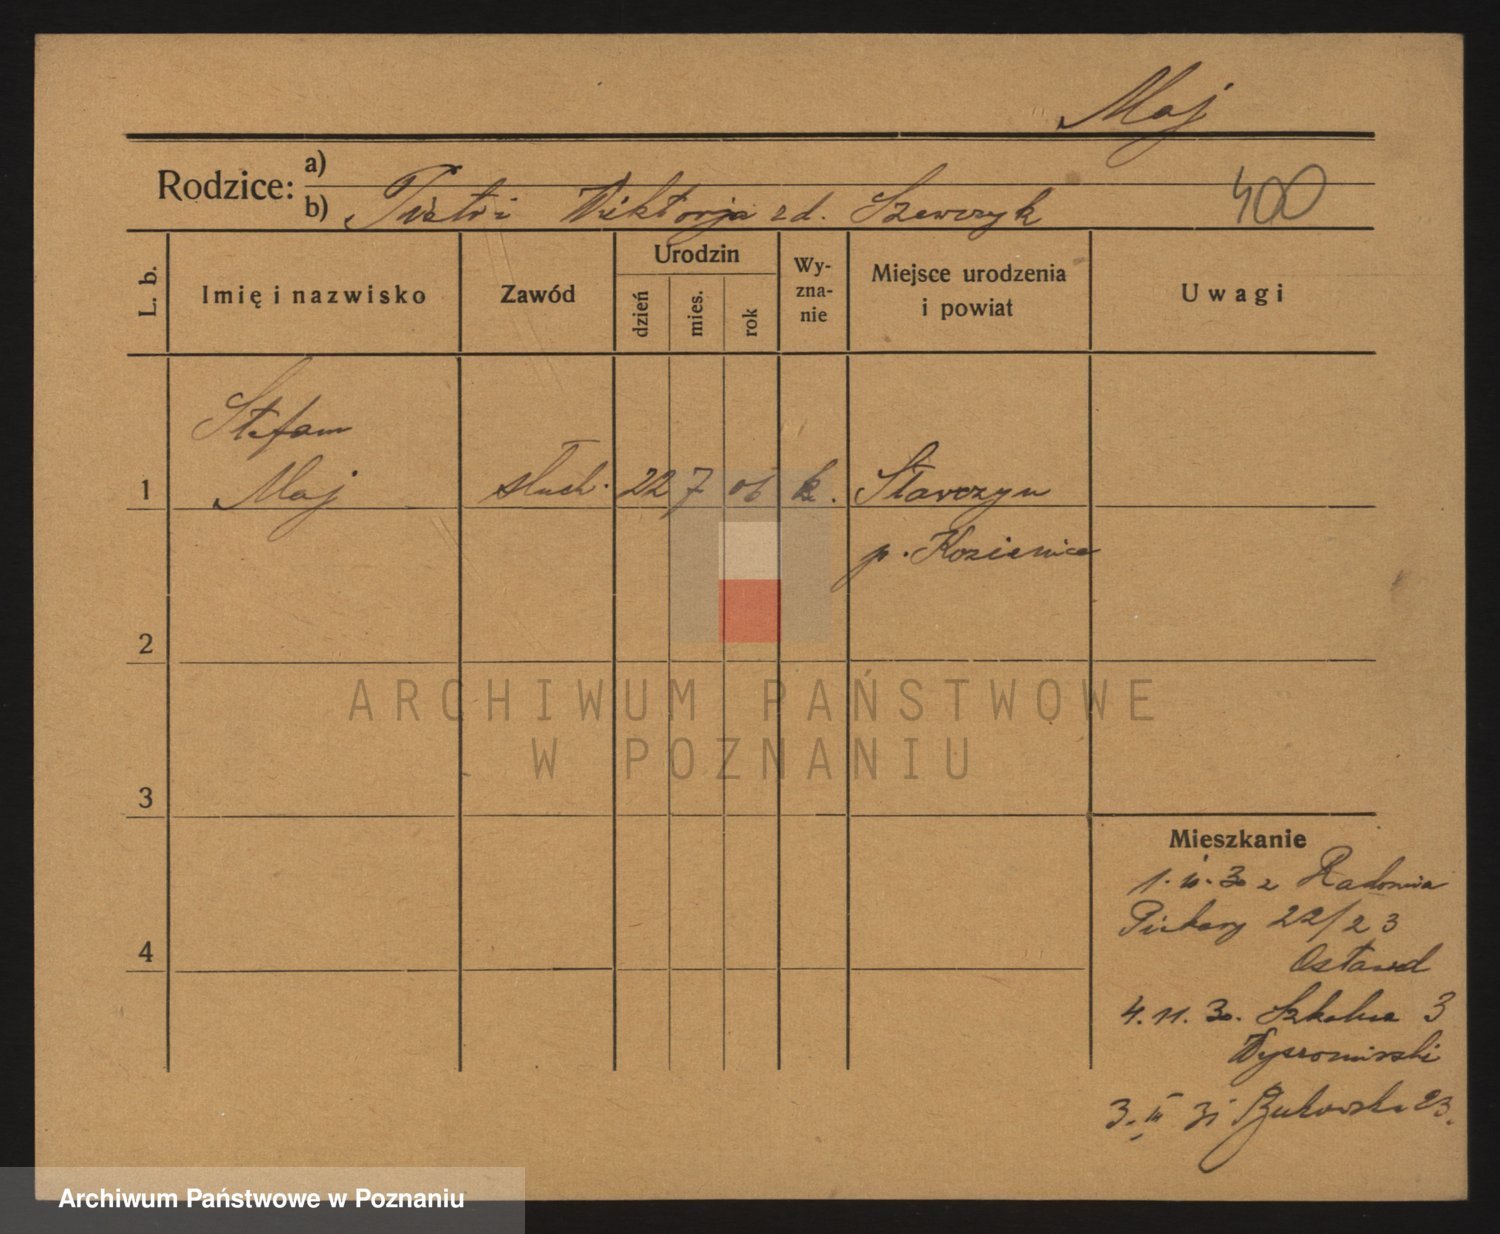 Maj
Rodzice: a)
b) Piotr i Wiktorja zd. Szewczyk
400
L. b.
Imię i nazwisko
Zawód
Urodzin
dzień
mies.
rok
Wy-
zna-
nie
Miejsce urodzenia
i powiat
Uwagi
Stefan
1 Maj słuch. 22 7 06 k. Stawczyn
p. Kozienice
2
ARCHIWUM PAŃSTWOWE
W POZNANIU
3
Mieszkanie
z Radomia
Piekary 22/23
4
4.11.30. Szkolna 3
3. III 31 Bukowska 23.
Archiwum Państwowe w Poznaniu